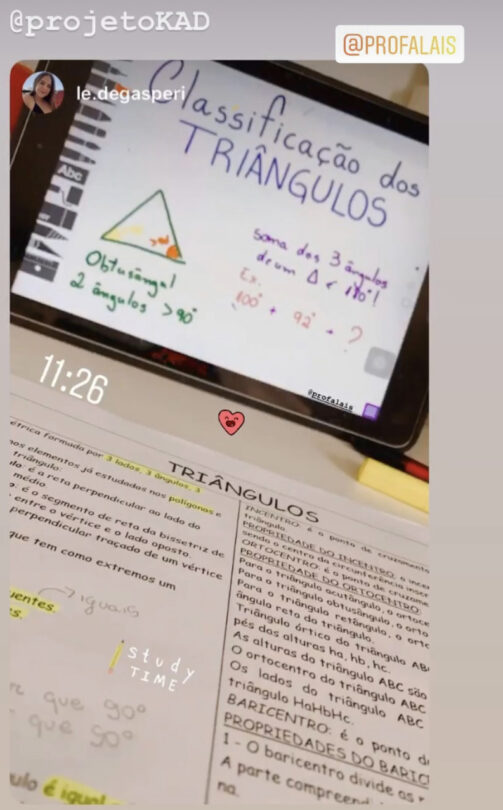 @projetoKAD
@PROFALAIS
le.degasperi
Classificação dos
TRIÂNGULOS
Abc
Soma dos 3 ângulos
de um Δ é 180°!
Obtusângul
2 ângulos > 90°
Ex.
100° + 92° + ?
@profalais
11:26
étrica formada por 3 lados, 3 ângulos, 3
nos elementos já estudados nos polígonos e
triângulo:
do: é a reta perpendicular ao lado do
médio.
a: é o segmento de reta da bissetriz de
entre o vértice e o lado oposto.
perpendicular traçado de um vértice
que tem como extremos um
uentes
iguais
s.
study
TIME
que 90°
que 90°
ulo é igual
TRIÂNGULOS
INCENTRO: é o ponto de cruzamento
triângulo
PROPRIEDADE DO INCENTRO: o incen
sendo o centro da circunferência inscr
ORTOCENTRO: é o ponto de cruzame
PROPRIEDADE DO ORTOCENTRO:
Para o triângulo acutângulo, o ortoce
Para o triângulo obtusângulo, o orto
Para o triângulo retângulo, o orto
ângulo reto do triângulo.
Triângulo órtico do triângulo AB
pés das alturas ha, hb, hc.
As alturas do triângulo ABC são
O ortocentro do triângulo ABC
Os lados do triângulo ABC
triângulo HaHbHc.
BARICENTRO: é o ponto d
PROPRIEDADES DO BARIC
1 - O baricentro divide as
A parte compreend
na